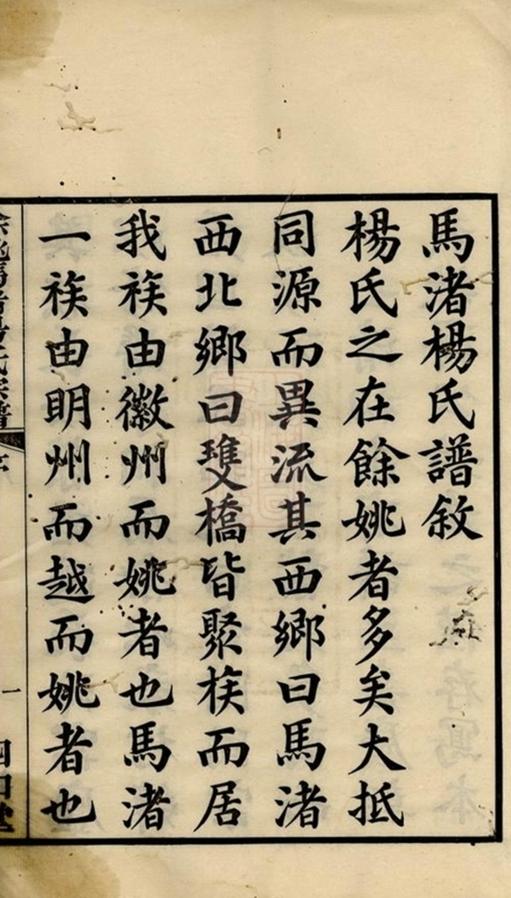 馬渚楊氏譜敘
楊氏之在餘姚者多矣大抵
同源而異流其西鄉曰馬渚
西北鄉曰雙橋皆聚族而居
我族由徽州而姚者也馬渚
一族由明州而越而姚者也
序
一